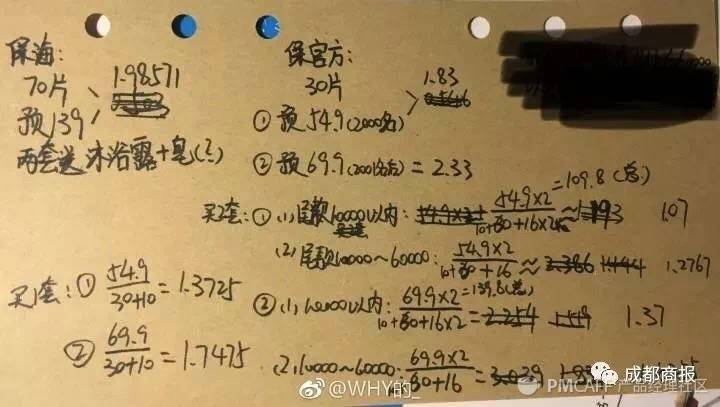 保海:
70片 1.98571
预139
两套送 沐浴露+皂(?)
保官方:
30片 1.83
① 预54.9(2000名)
② 预69.9(2001名后) = 2.33
买2套: ① (1) 尾款10000以内: 54.9×2 = 109.8(总)
10+30+16×2 ≈ 1.07
(2) 尾款10000~60000: 54.9×2
10+30+16 ≈ 1.2767
② (1) 10000以内: 69.9×2 = 139.8(总)
10+30+16×2 = 1.37
(2) 10000~60000: 69.9×2
30+16 =
买1套: ① 54.9
30+10 = 1.3725
② 69.9
30+10 = 1.7475
@WHY的_
成都商报
PMCAFF产品经理社区